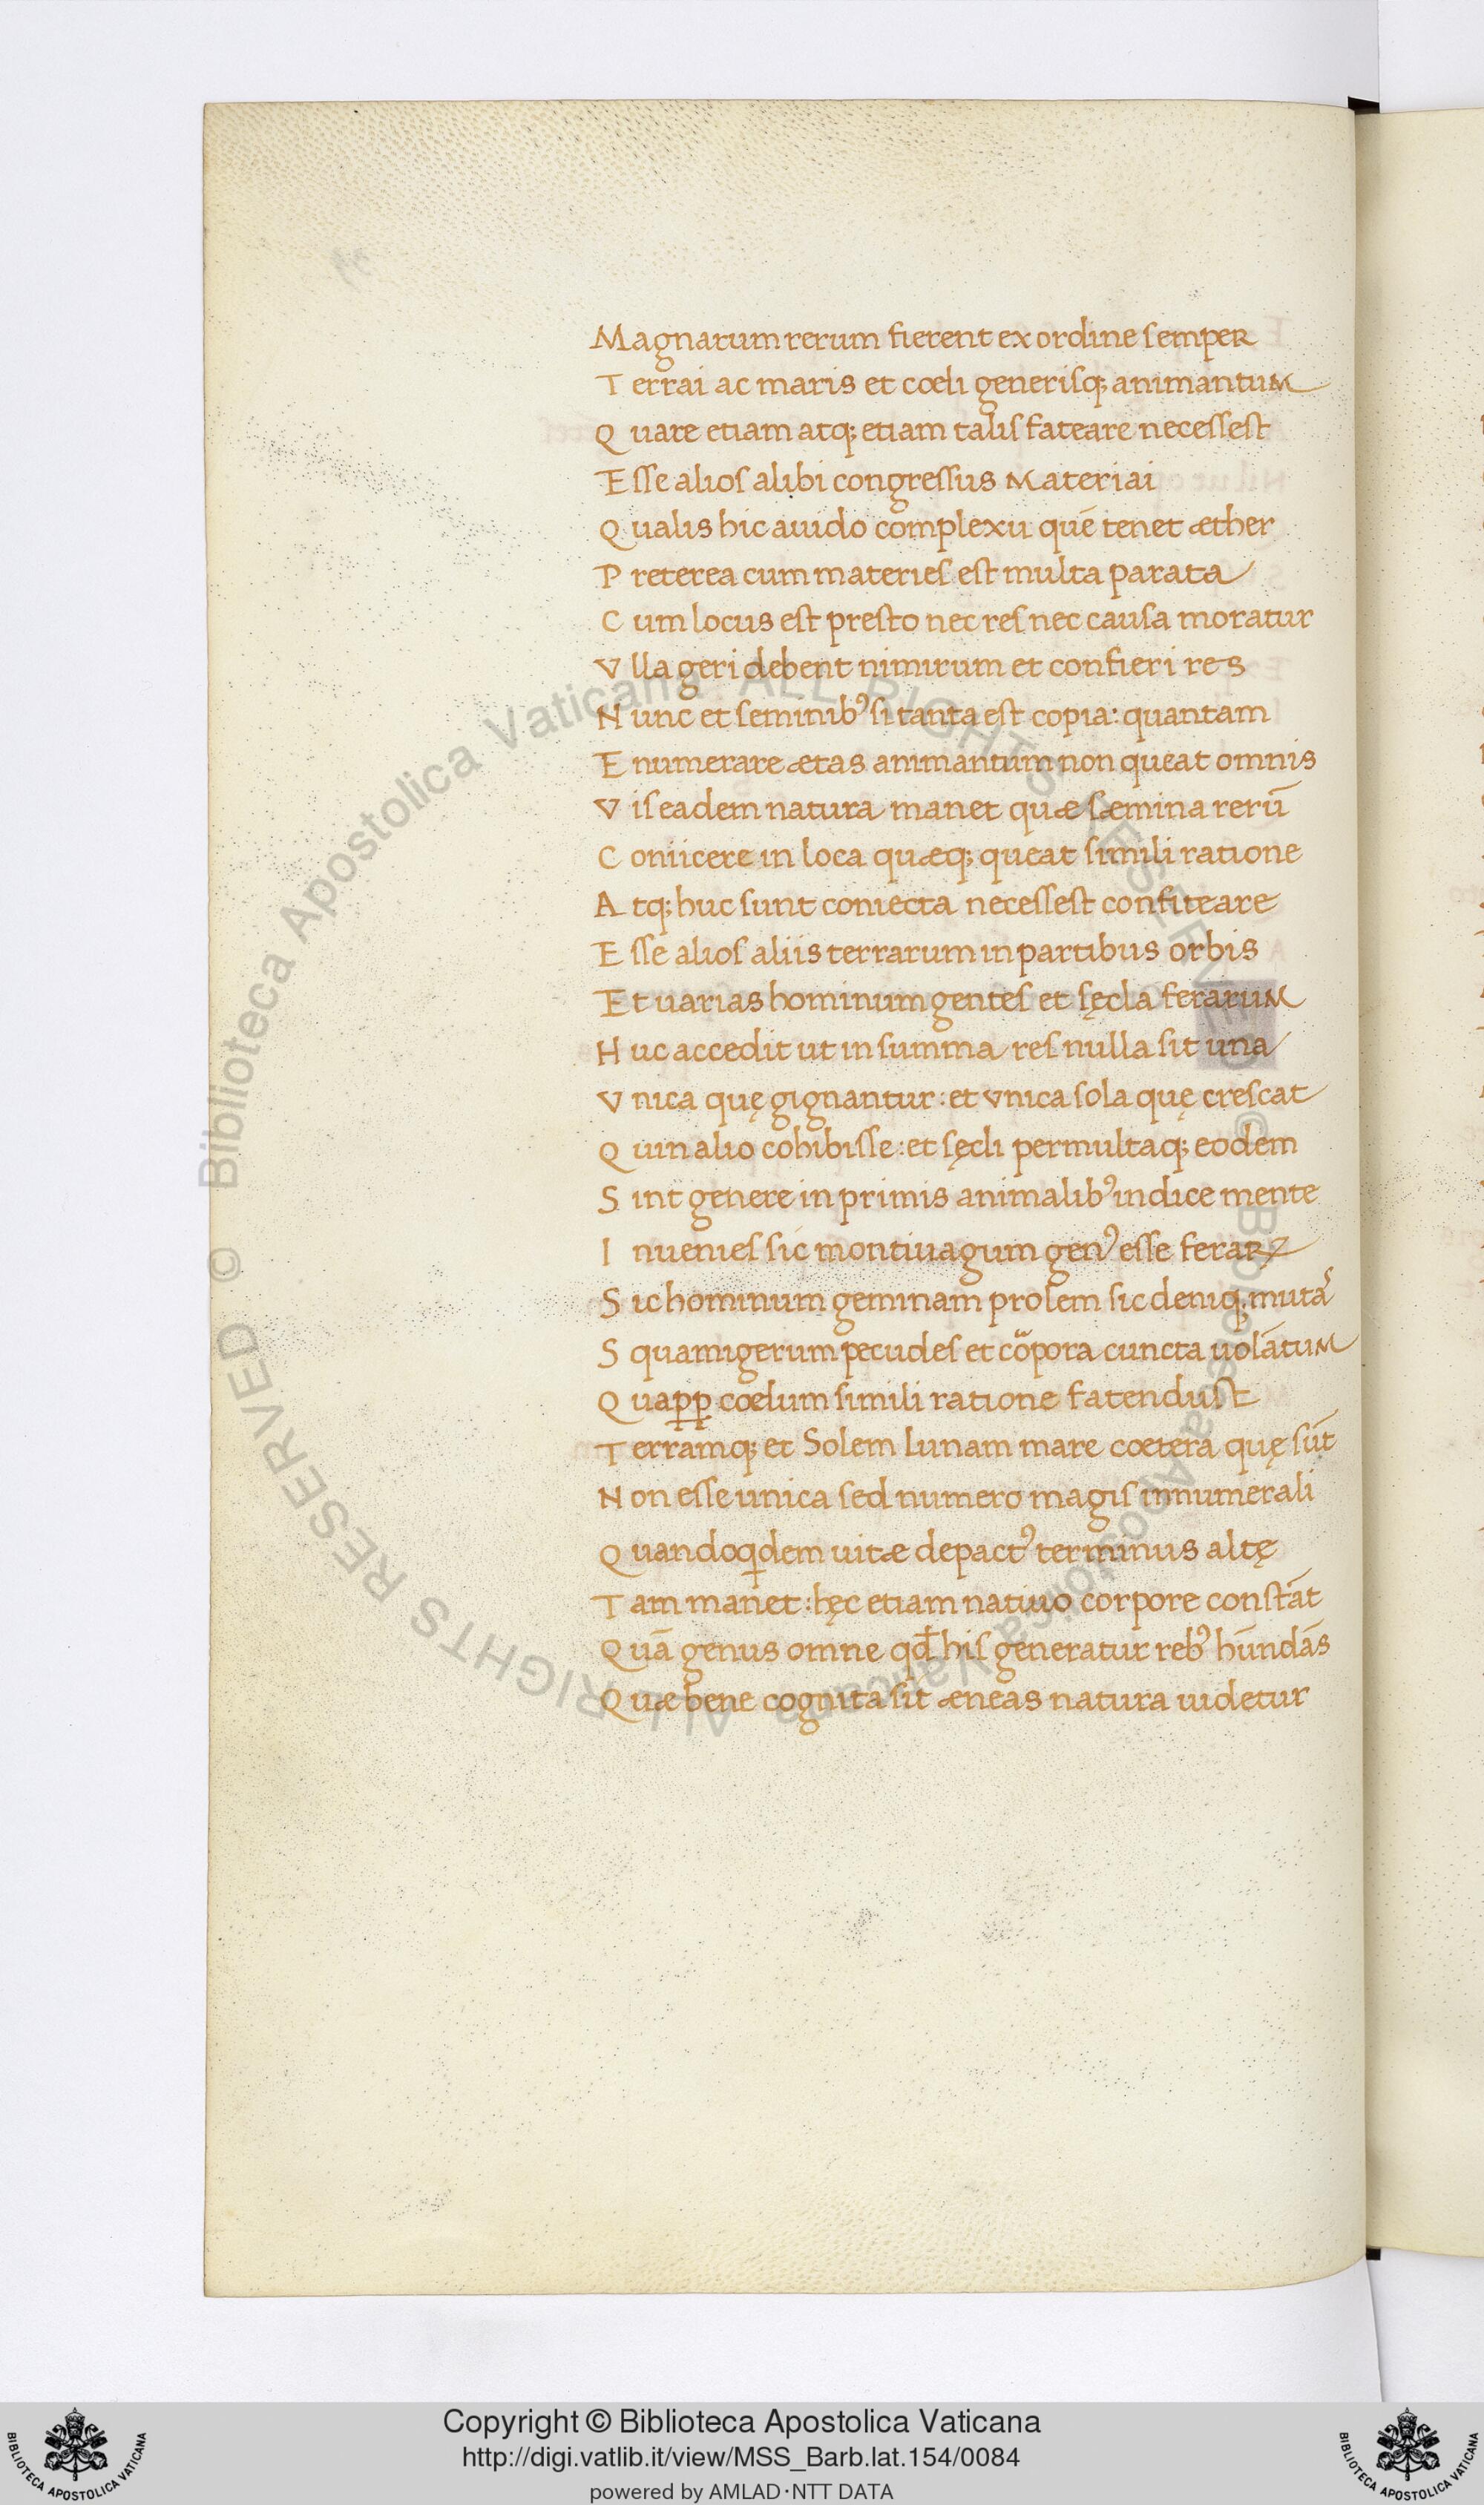 Magnarum rerum fierent ex ordine semper
Terrai ac maris et cœli generisq; animantum
Quare etiam atq; etiam talis fateare necessest
Esse alios alibi congressus Materiai
Qualis hic auido complexu quē tenet æther
Preterea cum materies est multa parata
Cum locus est presto nec res nec causa moratur
Vlla geri debent nimirum et confieri res
Nunc et seminibꝰ si tanta est copia: quantam
Enumerare ætas animantum non queat omnis
Vis eadem natura manet quæ sæmina rerū
Coniicere in loca quæq; queat simili ratione
Atq; huc sunt coniecta necessest confiteare
Esse alios aliis terrarum in partibus orbis
Et uarias hominum gentes et sęcla ferarum
Huc accedit ut in summa res nulla sit una
Vnica quę gignantur: et vnica sola quę crescat
Quin alio cohibisse: et sęcli permultaq; eodem
Sint genere in primis animalibꝰ indice mente
Inuenies sic montiuagum genꝰ esse feraꝝ
Sic hominum geminam prolem sic deniq; mutaꝰ
Squamigerum pecudes et cōpora cuncta uolātum
Quaꝓꝓ cœlum simili ratione fatendust
Terramq; et Solem lunam mare cœtera quę sūt
Non esse unica sed numero magis innumerali
Quandoqdem uitæ depactꝰ terminus altę
Tam manet: hęc etiam natiuo corpore constāt
Quā genus omne qđ his generatur rebꝰ hūndās
Quæ bene cognita sit æneas natura uidetur
Copyright © Biblioteca Apostolica Vaticana
http://digi.vatlib.it/view/MSS_Barb.lat.154/0084
powered by AMLAD·NTT DATA
BIBLIOTECA APOSTOLICA VATICANA
BIBLIOTECA APOSTOLICA VATICANA
© Biblioteca Apostolica Vaticana ALL RIGHTS RESERVED
© Biblioteca Apostolica Vaticana ALL RIGHTS RESERVED